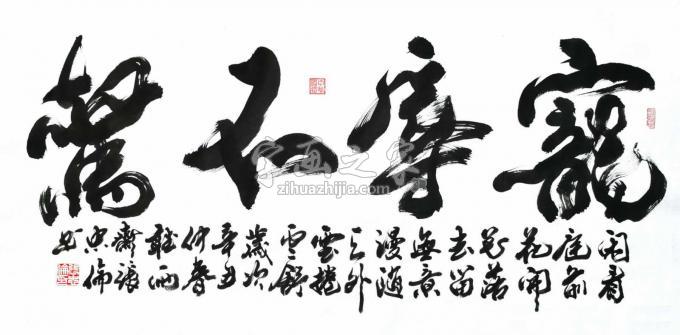 寵辱不驚
闲看
庭前
花開
花落
去留
無意
漫随
天外
雲捲
雲舒
歲次
辛丑
仲春
齋
忠倫
书
字画之家
zihuazhijia.com